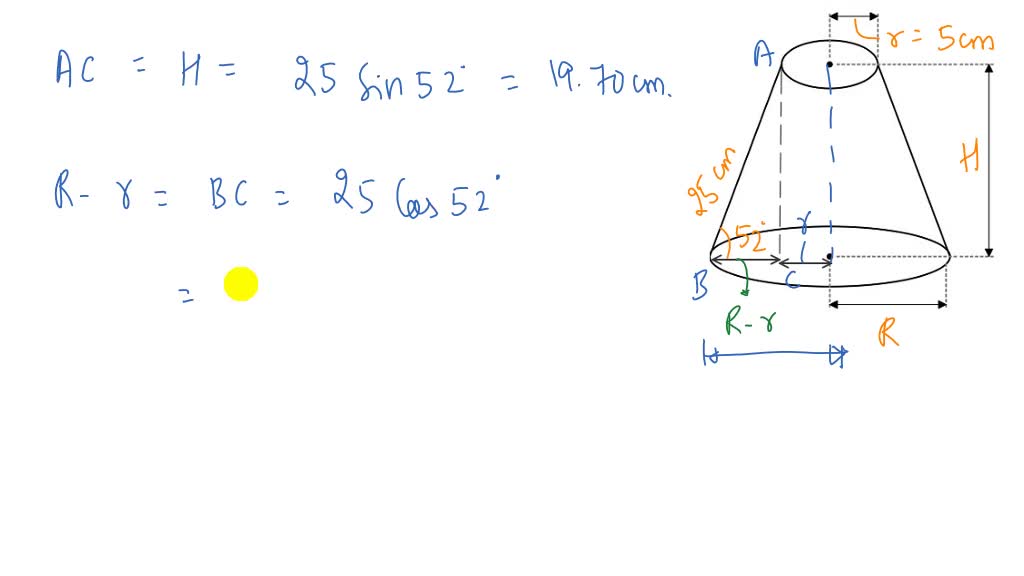 AC = H = 25 sin 52° = 19.70 cm.
R - r = BC = 25 Cos 52°
=
r = 5 cm
A
25 cm
H
52°
r
B
C
R - r
R